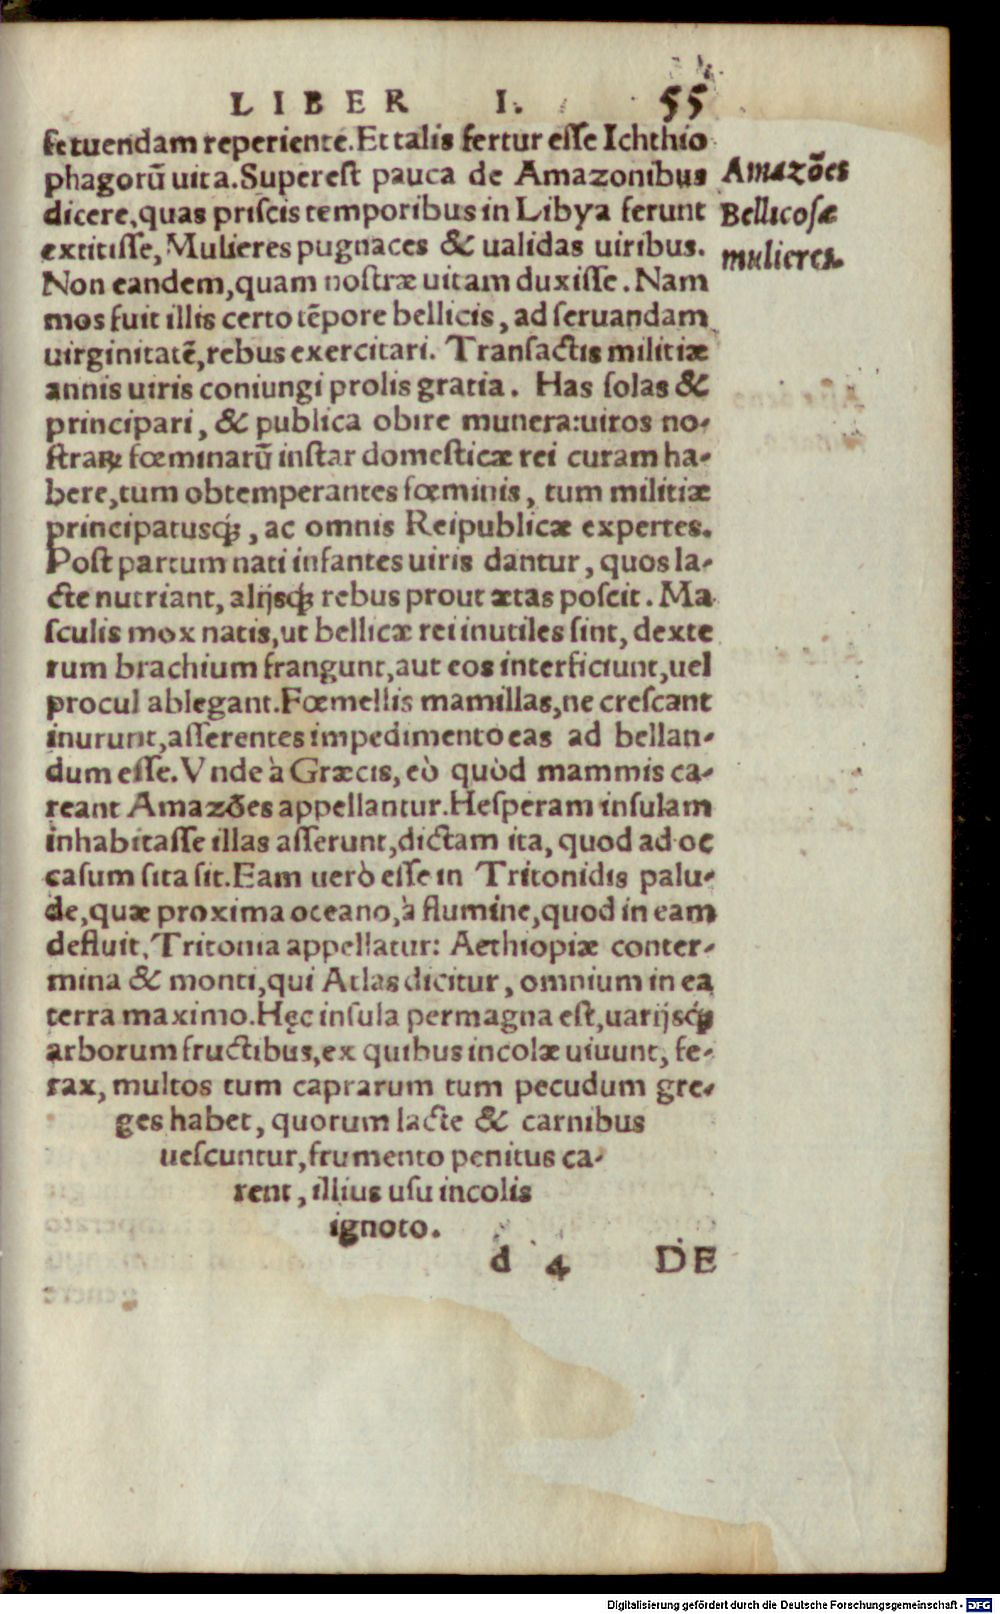 LIBER I. 55
se tuendam reperiente. Et talis fertur esse Ichthio
phagorũ uita. Superest pauca de Amazonibus
dicere, quas priscis temporibus in Libya ferunt
extitisse, Mulieres pugnaces & ualidas uiribus.
Non eandem, quam nostræ uitam duxisse. Nam
mos fuit illis certo tẽpore bellicis, ad seruandam
uirginitatẽ, rebus exercitari. Transactis militiæ
annis uiris coniungi prolis gratia. Has solas &
principari, & publica obire munera: uiros no-
straꝝ fœminarũ instar domesticæ rei curam ha-
bere, tum obtemperantes fœminis, tum militiæ
principatusq́ꝫ, ac omnis Reipublicæ expertes.
Post partum nati infantes uiris dantur, quos la-
cte nutriant, alijsq́ꝫ rebus prout ætas poscit. Ma
sculis mox natis, ut bellicæ rei inutiles sint, dexte
rum brachium frangunt, aut eos interficiunt, uel
procul ablegant. Fœmellis mamillas, ne crescant
inurunt, asserentes impedimento eas ad bellan-
dum esse. Vnde à Græcis, eò quòd mammis ca-
reant Amazões appellantur. Hesperam insulam
inhabitasse illas asserunt, dictam ita, quod ad oc
casum sita sit. Eam uerò esse in Tritonidis palu-
de, quæ proxima oceano, à flumine, quod in eam
defluit, Tritonia appellatur: Aethiopiæ conter-
mina & monti, qui Atlas dicitur, omnium in ea
terra maximo. Hęc insula permagna est, uarijsq́ꝫ
arborum fructibus, ex quibus incolæ uiuunt, fe-
rax, multos tum caprarum tum pecudum gre-
ges habet, quorum lacte & carnibus
uescuntur, frumento penitus ca-
rent, illius usu incolis
ignoto.
d 4 DE
Amazões
Bellicosæ
mulieres.
Digitalisierung gefördert durch die Deutsche Forschungsgemeinschaft - DFG